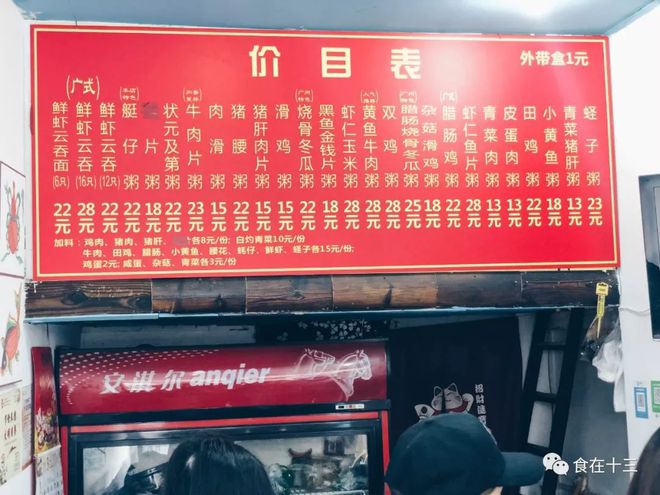 价目表
外带盒1元
(广式)
鲜虾云吞面(6只) 22元
鲜虾云吞面(16只) 28元
鲜虾云吞(12只) 22元
本店特色
艇仔粥 22元
粥 18元
状元及第粥 22元
牛肉片粥 23元
肉滑粥 15元
猪腰粥 22元
猪肝肉片粥 15元
滑鸡粥 15元
广州特色
烧骨冬瓜粥 22元
黑鱼金钱片粥 18元
虾仁玉米粥 28元
人气
黄鱼牛肉粥 28元
双鸡粥 28元
广州特色
腊肠烧骨冬瓜粥 25元
杂菇滑鸡粥 18元
广式
腊肠鸡粥 22元
虾仁鱼片粥 28元
青菜肉粥 13元
皮蛋肉粥 13元
田鸡粥 22元
小黄鱼粥 18元
青菜猪肝粥 13元
蛏子粥 23元
加料：鸡肉、猪肉、猪肝、各8元/份；白灼青菜10元/份
牛肉、田鸡、腊肠、小黄鱼、腰花、蚝仔、鲜虾、蛏子各15元/份；
鸡蛋2元；咸蛋、杂菇、青菜各3元/份
安淇尔 anqier
招财進寶
食在十三